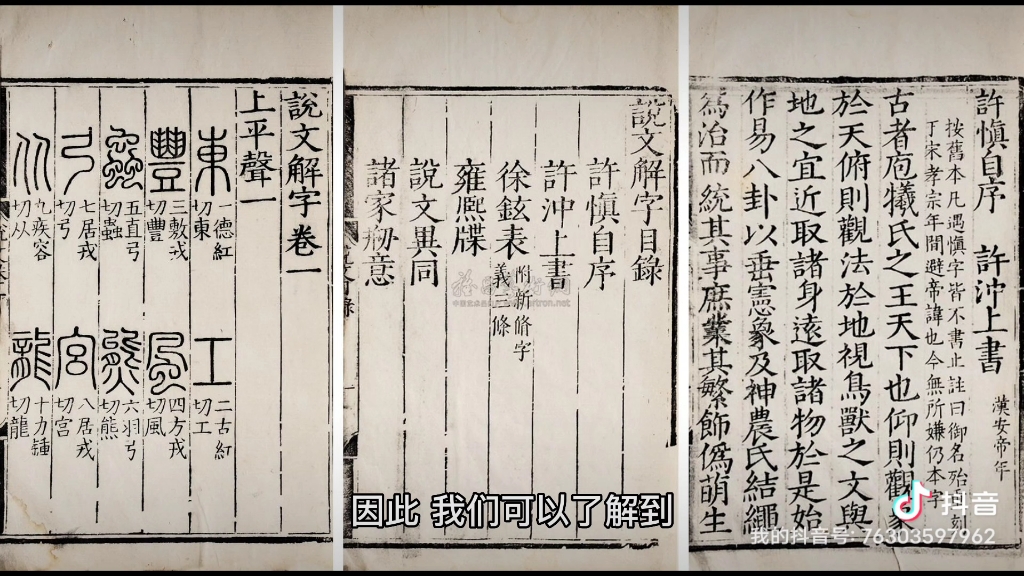 許慎自序　許沖上書　漢安帝年
按舊本凡遇慎字皆不書止註曰御名殆
刻
丁宋孝宗年間避帝諱也今無所嫌仍本字
古者庖犧氏之王天下也仰則觀象
於天俯則觀法於地視鳥獸之文與
地之宜近取諸身遠取諸物於是始
作易八卦以垂憲象及神農氏結繩
為治而統其事庶業其繁飾僞萌生
說文解字目錄
許慎自序
許沖上書
徐鉉表　附新脩字義三條
雍熈牒
說文異同
諸家剏意
說文解字卷一
上平聲一
東 一德紅切東
工 二古紅切工
豐 三敷戎切豐
風 四方戎切風
蟲 五直弓切蟲
熊 六羽弓切熊
弓 七居戎切弓
宮 八居戎切宮
从 九疾容切从
龍 十力鍾切龍
因此 我们可以了解到
抖音
我的抖音号: 76303597962